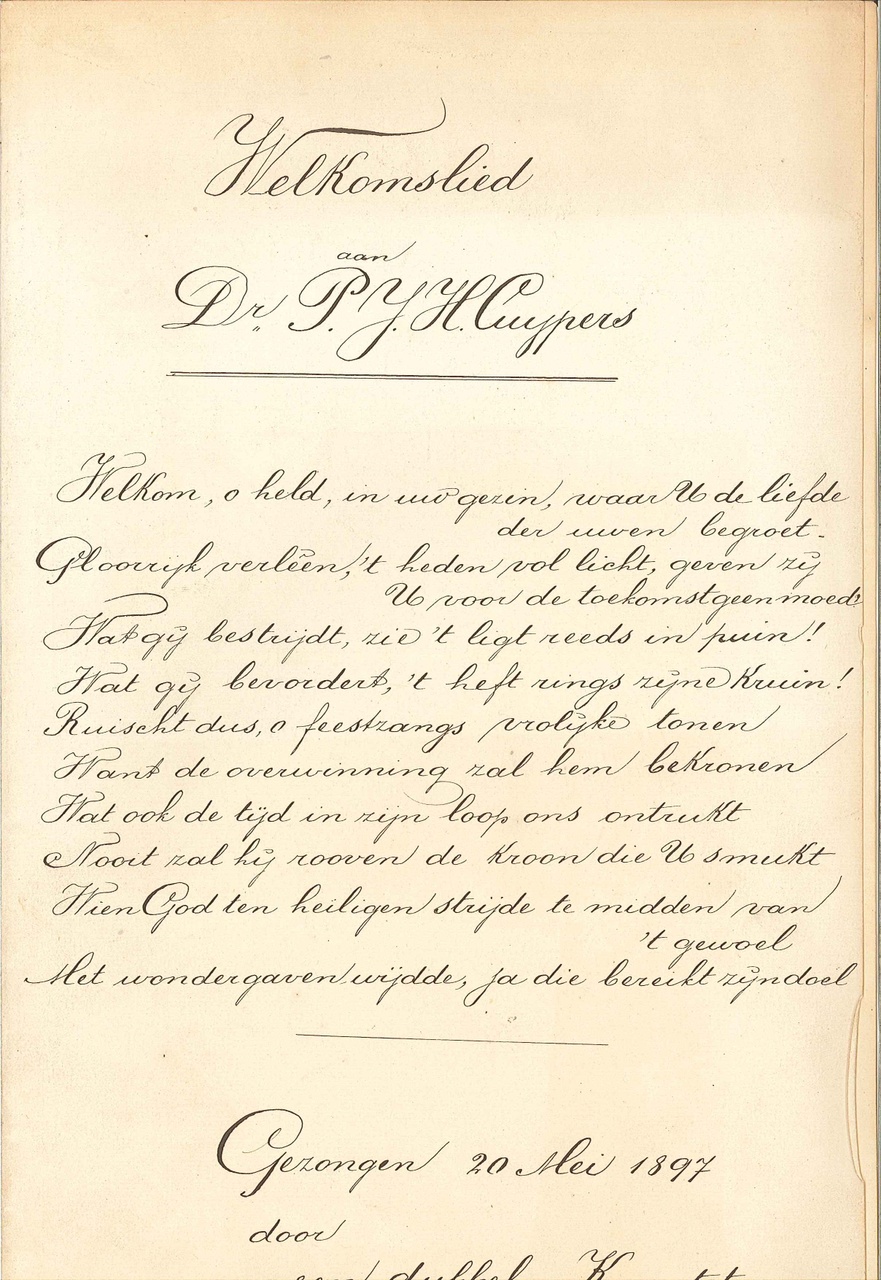 Welkomslied
aan
Dr. P. J. H. Cuypers
Welkom, o held, in uw gezin, waar U de liefde
der uwen begroet.
Gloorrijk verlêen, 't heden vol licht, geven zij
U voor de toekomst geen moed?
Wat gij bestrijdt, zie 't ligt reeds in puin!
Wat gij bevordert, 't heft rings zijne kruin!
Ruischt dus, o feestzangs vrolijke tonen
Want de overwinning zal hem bekronen
Wat ook de tijd in zijn loop ons ontrukt
Nooit zal hij rooven de kroon die U smukt
Wien God ten heiligen strijde te midden van
't gewoel
Met wondergaven wijdde, ja die bereikt zijn doel
Gezongen 20 Mei 1897
door
een dubbel